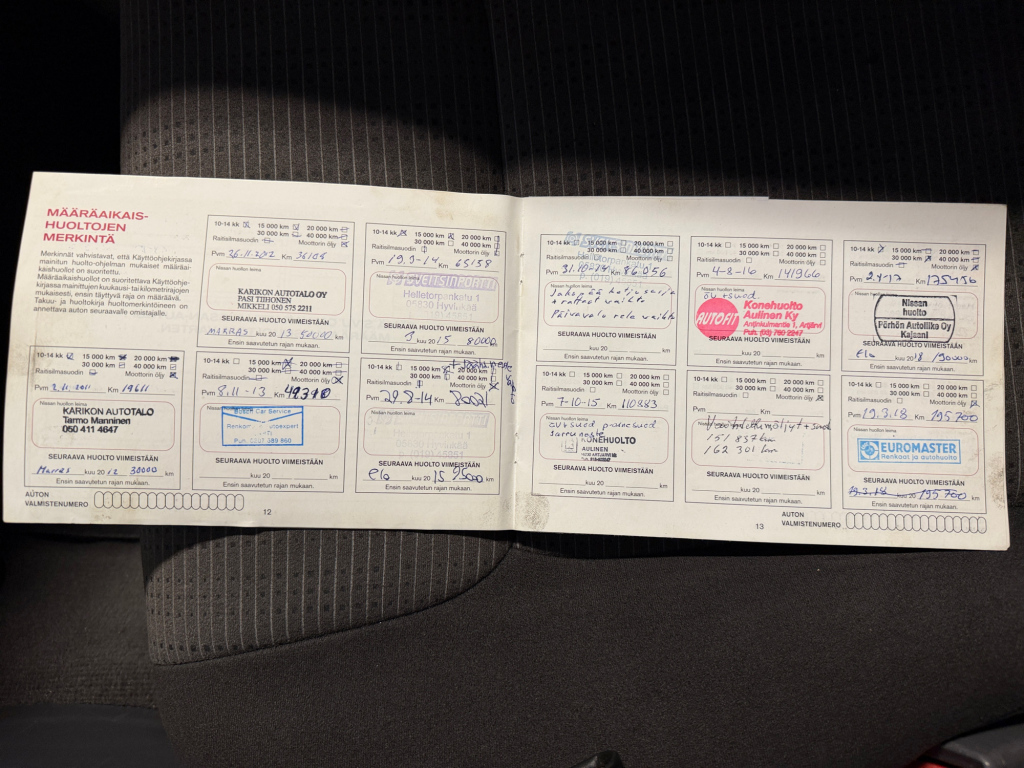 MÄÄRÄAIKAIS-
HUOLTOJEN
MERKINTÄ
Merkinnät vahvistavat, että Käyttöohjekirjassa
mainitun huolto-ohjelman mukaiset määräai-
kaishuollot on suoritettu.
Määräaikaishuollot on suoritettava Käyttöohje-
kirjassa mainittujen kuukausi- tai kilometrirajojen
mukaisesti, ensin täyttyvä raja on määräävä.
Takuu- ja huoltokirja huoltomerkintöineen on
annettava auton seuraavalle omistajalle.
10-14 kk 15 000 km 20 000 km
30 000 km 40 000 km
Raitisilmasuodin Moottorin öljy
Pvm 2.11.2011 Km 19611
Nissan huollon leima
KARIKON AUTOTALO
Tarmo Manninen
050 411 4647
SEURAAVA HUOLTO VIIMEISTÄÄN
Marras kuu 20 12 30000 km
Ensin saavutetun rajan mukaan.
10-14 kk 15 000 km 20 000 km
30 000 km 40 000 km
Raitisilmasuodin Moottorin öljy
Pvm 26.11.2012 Km 36105
Nissan huollon leima
KARIKON AUTOTALO OY
PASI TIIHONEN
MIKKELI 050 575 2211
SEURAAVA HUOLTO VIIMEISTÄÄN
MARRAS kuu 20 13 50000 km
Ensin saavutetun rajan mukaan.
10-14 kk 15 000 km 20 000 km
30 000 km 40 000 km
Raitisilmasuodin Moottorin öljy
Pvm 8.11-13 Km
Nissan huollon leima
Bosch Car Service
SEURAAVA HUOLTO VIIMEISTÄÄN
kuu 20 km
Ensin saavutetun rajan mukaan.
10-14 kk 15 000 km 20 000 km
30 000 km 40 000 km
Raitisilmasuodin Moottorin öljy
Pvm 19.3-14 Km 65138
Nissan huollon leima
Helletorpankatu 1
SEURAAVA HUOLTO VIIMEISTÄÄN
3 kuu 20 15 80000 km
Ensin saavutetun rajan mukaan.
10-14 kk 15 000 km
30 000 km 40 000 km
Raitisilmasuodin Moottorin öljy
Pvm 29.8-14 Km
Nissan huollon leima
SEURAAVA HUOLTO VIIMEISTÄÄN
elo kuu 20 15 95000 km
Ensin saavutetun rajan mukaan.
AUTON
VALMISTENUMERO
12
10-14 kk 15 000 km 20 000 km
30 000 km 40 000 km
Raitisilmasuodin Moottorin öljy
Pvm 31.10-14 Km 86.056
+ rattaat vaihto
Päivävalo rele vaihto
SEURAAVA HUOLTO VIIMEISTÄÄN
kuu 20 km
Ensin saavutetun rajan mukaan.
10-14 kk 15 000 km 20 000 km
30 000 km 40 000 km
Raitisilmasuodin Moottorin öljy
Pvm 7-10-15 Km 110883
Nissan huollon leima
KONEHUOLTO
AULINEN
SEURAAVA HUOLTO VIIMEISTÄÄN
kuu 20 km
Ensin saavutetun rajan mukaan.
10-14 kk 15 000 km 20 000 km
30 000 km 40 000 km
Raitisilmasuodin Moottorin öljy
Pvm 4-2-16 Km 141966
Nissan huollon leima
öv+sued.
AUTOFIT
Konehuolto
Aulinen Ky
Artjärvi
SEURAAVA HUOLTO VIIMEISTÄÄN
kuu 20 km
Ensin saavutetun rajan mukaan.
10-14 kk 15 000 km 20 000 km
30 000 km 40 000 km
Raitisilmasuodin Moottorin öljy
Pvm Km
151 837 km
162 301 km
SEURAAVA HUOLTO VIIMEISTÄÄN
kuu 20 km
Ensin saavutetun rajan mukaan.
10-14 kk 15 000 km 20 000 km
30 000 km 40 000 km
Raitisilmasuodin Moottorin öljy
Pvm Km 175456
Nissan huollon leima
Nissan
huolto
Pörhön Autoliike Oy
Kajaani
SEURAAVA HUOLTO VIIMEISTÄÄN
Elo kuu 20 18 190000 km
Ensin saavutetun rajan mukaan.
10-14 kk 15 000 km 20 000 km
30 000 km 40 000 km
Raitisilmasuodin Moottorin öljy
Pvm 19.3.18 Km 195700
Nissan huollon leima
EUROMASTER
Renkaat ja autohuolto
SEURAAVA HUOLTO VIIMEISTÄÄN
19.3.18 kuu 20 195700 km
Ensin saavutetun rajan mukaan.
AUTON
VALMISTENUMERO
13